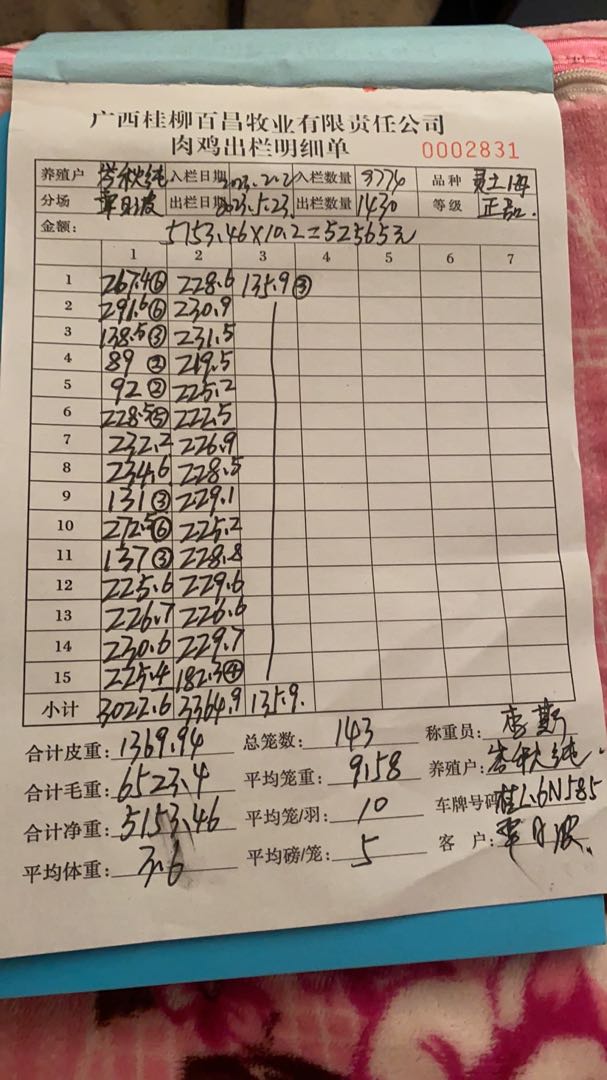 广西桂柳百昌牧业有限责任公司
肉鸡出栏明细单 0002831
养殖户 岑秋纯 入栏日期 2023.2.2 入栏数量 3774 品种 灵土1号
分场 覃日波 出栏日期 2023.5.23. 出栏数量 1430 等级 正品.
金额: 5153.46×10.2=52565元
1 2 3 4 5 6 7
1 267.4⑥ 228.6 135.9③
2 291.6⑥ 230.9
3 138.5③ 231.5
4 89② 219.5
5 92② 225.2
6 228.5⑤ 222.5
7 232.2 226.9
8 234.6 228.5
9 131③ 229.1
10 272.5⑥ 225.2
11 137③ 228.8
12 225.6 229.6
13 226.7 226.6
14 230.6 229.7
15 225.4 182.3④
小计 3022.6 3364.9 135.9.
合计皮重: 1369.94 总笼数: 143 称重员: 李斯
合计毛重: 6523.4 平均笼重: 9.58 养殖户: 岑秋纯.
合计净重: 5153.46 平均笼/羽: 10 车牌号码: 桂L·6N585
平均体重: 3.6 平均磅/笼: 5 客户: 覃日波.